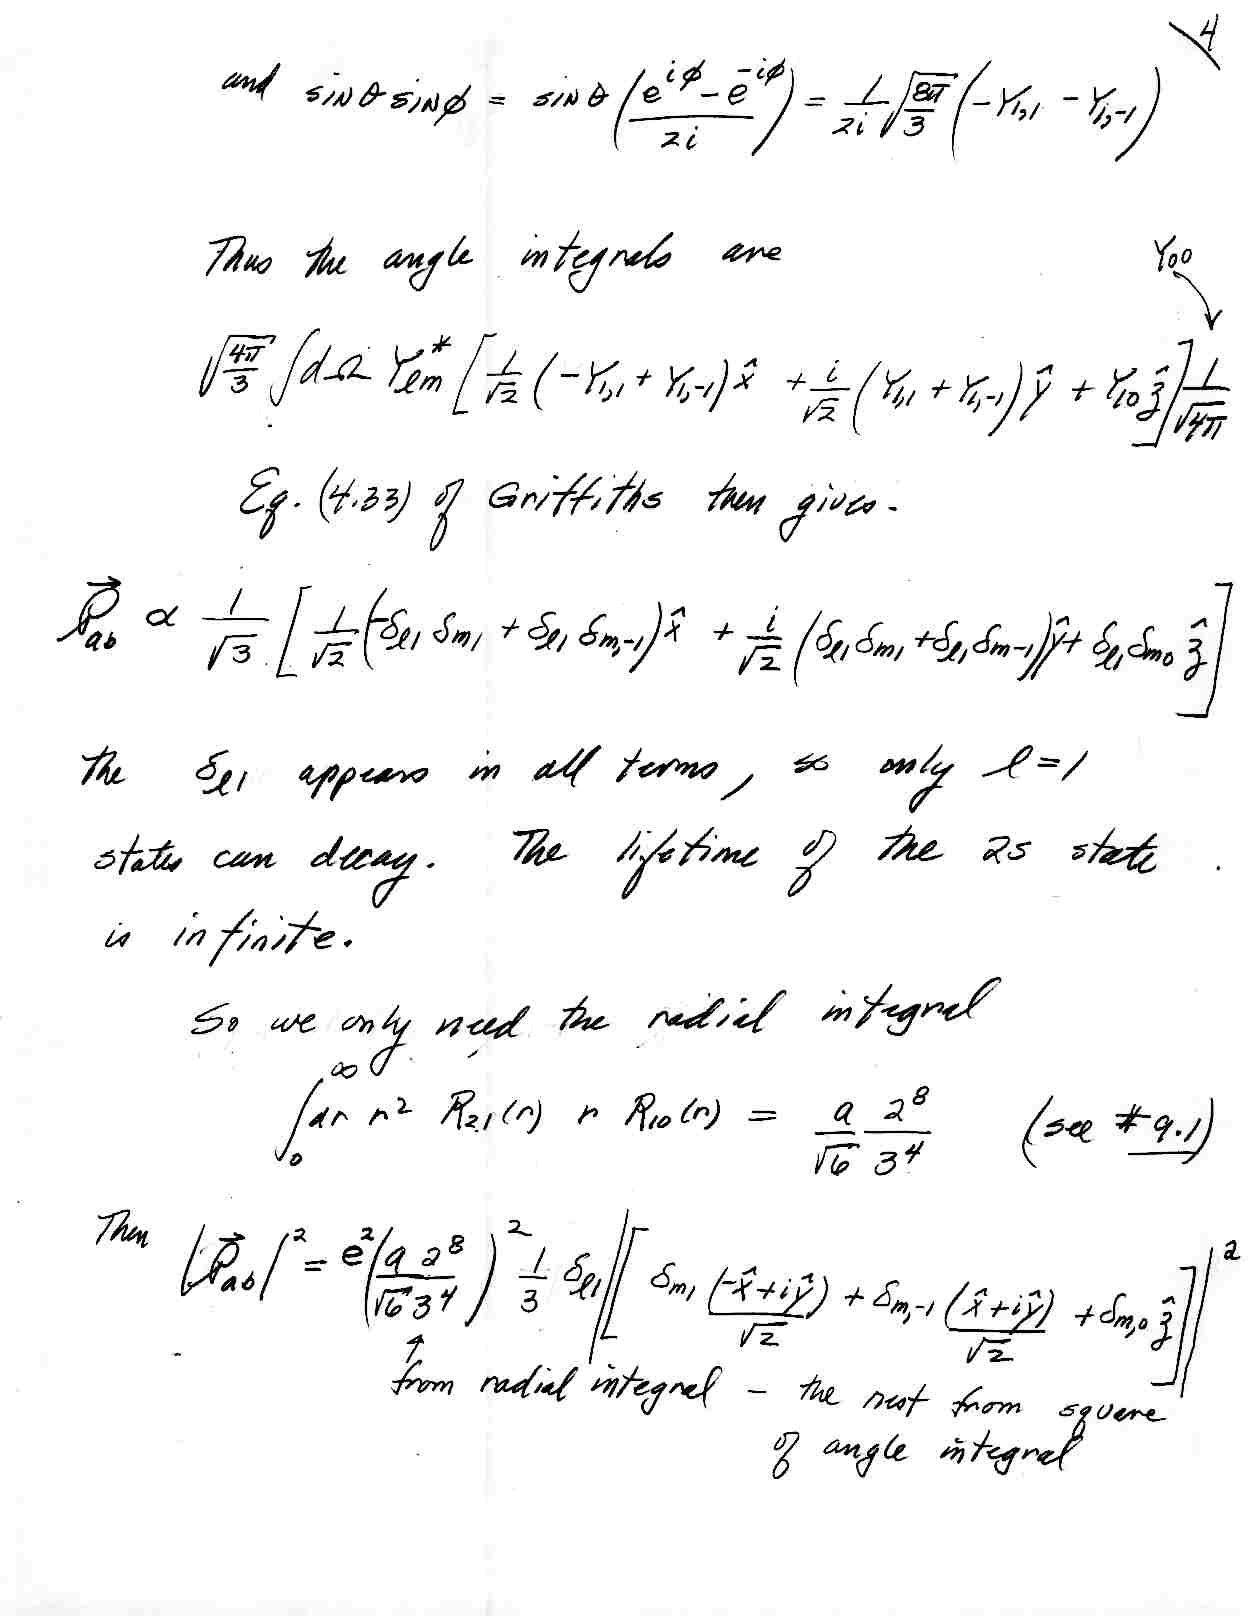 4
and sinθ sinφ = sinθ ( (e^{iφ} - e^{-iφ}) / 2i ) = 1/2i √(8π/3) (-Y_{1,1} - Y_{1,-1})
Thus the angle integrals are
Y_{00}
√(4π/3) ∫dΩ Y_{lm}^* [ 1/√2 (-Y_{1,1} + Y_{1,-1}) x̂ + i/√2 (Y_{1,1} + Y_{1,-1}) ŷ + Y_{10} ẑ ] 1/√4π
Eq. (4.33) of Griffiths then gives.
P⃗_{ab} ∝ 1/√3 [ 1/√2 (-δ_{l1} δ_{m1} + δ_{l1} δ_{m,-1}) x̂ + i/√2 (δ_{l1} δ_{m1} + δ_{l1} δ_{m-1}) ŷ + δ_{l1} δ_{m0} ẑ ]
The δ_{l1} appears in all terms, so only l = 1
states can decay. The lifetime of the 2s state
is infinite.
So we only need the radial integral
∫_0^∞ dr r^2 R_{21}(r) r R_{10}(r) = a/√6 2^8/3^4 (see # 9.1)
Then |P⃗_{ab}|^2 = e^2 ( a 2^8 / √6 3^4 )^2 1/3 δ_{l1} |[ δ_{m1} (-x̂ + iŷ)/√2 + δ_{m,-1} (x̂ + iŷ)/√2 + δ_{m,0} ẑ ]|^2
↑
from radial integral - the rest from square
of angle integral